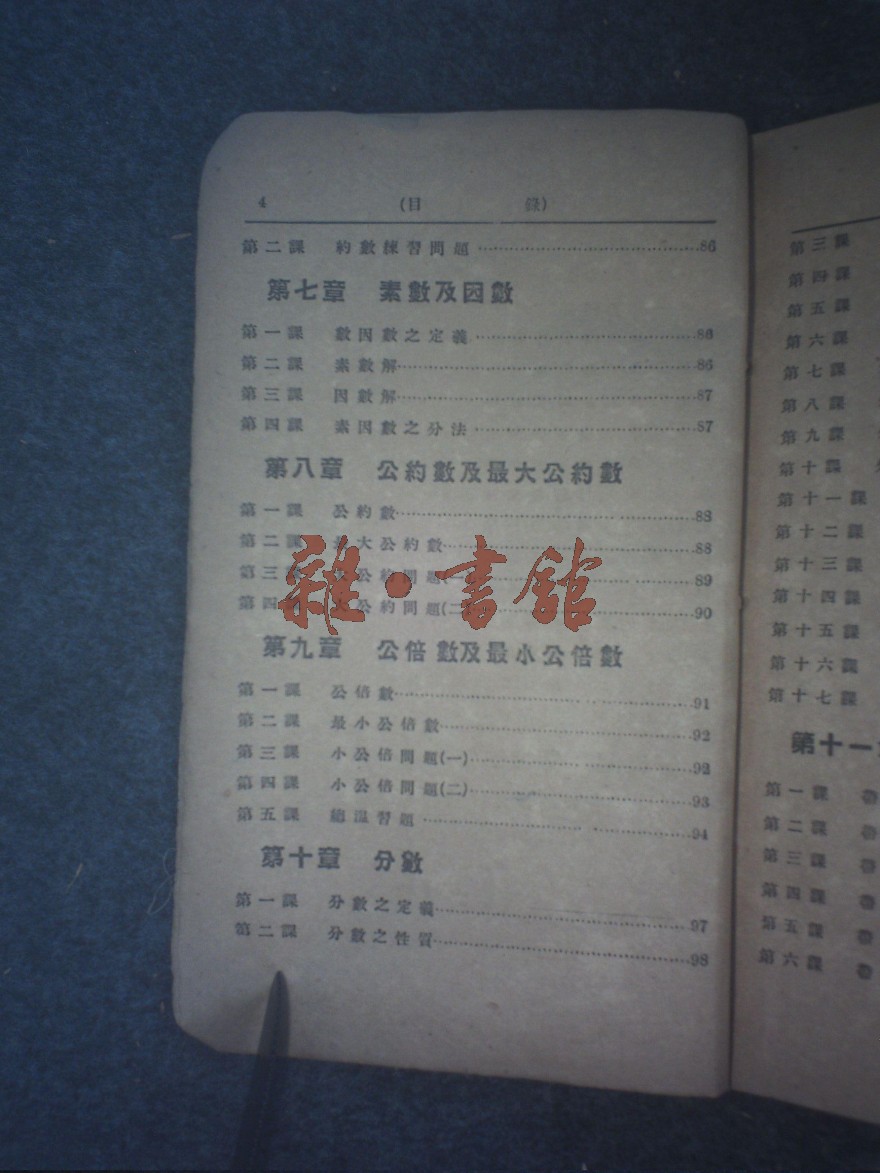 4 (目 錄)
第二課 約數練習問題 86
第七章 素數及因數
第一課 數因數之定義 86
第二課 素數解 86
第三課 因數解 87
第四課 素因數之分法 87
第八章 公約數及最大公約數
第一課 公約數 88
第二課 大公約數 88
第三課 公約問題(一) 89
第四課 大公約問題(二) 90
雜·書館
第九章 公倍數及最小公倍數
第一課 公倍數 91
第二課 最小公倍數 92
第三課 小公倍問題(一) 92
第四課 小公倍問題(二) 93
第五課 總溫習題 94
第十章 分數
第一課 分數之定義 97
第二課 分數之性質 98
第三課
第四課
第五課
第六課
第七課
第八課
第九課
第十課
第十一課
第十二課
第十三課
第十四課
第十五課
第十六課
第十七課
第十一
第一課
第二課
第三課
第四課
第五課
第六課